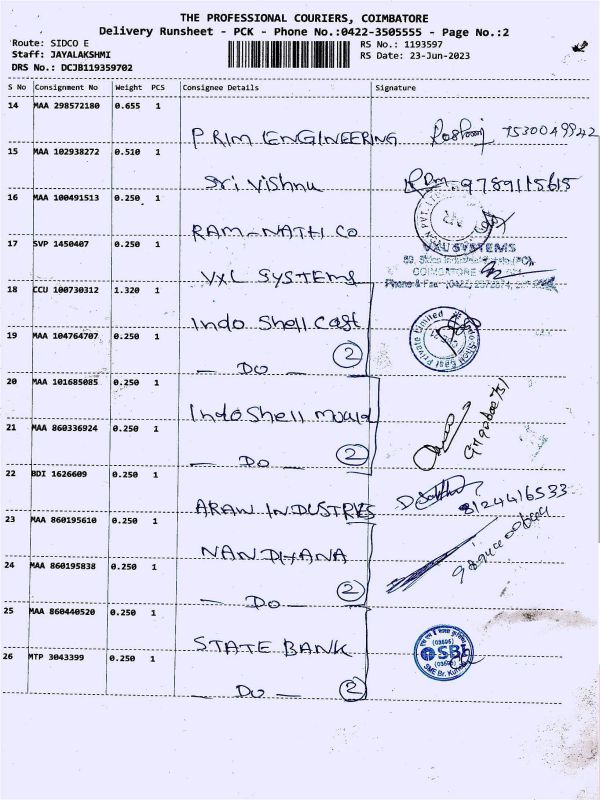 THE PROFESSIONAL COURIERS, COIMBATORE
Delivery Runsheet - PCK - Phone No.:0422-3505555 - Page No.:2
Route: SIDCO E
RS No.: 1193597
Staff: JAYALAKSHMI
RS Date: 23-Jun-2023
DRS No.: DCJB119359702
S No Consignment No Weight PCS Consignee Details Signature
14 MAA 298572180 0.655 1
PRIM ENGINEERING 7530049942
15 MAA 102938272 0.510 1
Sri Vishnu 9789115615
16 MAA 100491513 0.250 1
RAM-NATH Co
17 SVP 1450407 0.250 1
VXL SYSTEMS
VXL SYSTEMS
COIMBATORE
18 CCU 100730312 1.320 1
Indo Shell Cast
19 MAA 104764707 0.250 1
— DO — 2
Indo Shell Cast Private Limited
20 MAA 101685085 0.250 1
Indo Shell Mould
21 MAA 860336924 0.250 1
— DO — 2
22 BDI 1626609 0.250 1
ARAW INDUSTRIES 8124416533
23 MAA 860195610 0.250 1
NANDIYANA
24 MAA 860195838 0.250 1
— DO — 2
25 MAA 860440520 0.250 1
STATE BANK
SBI
SME Br.
26 MTP 3043399 0.250 1
— DO — 2